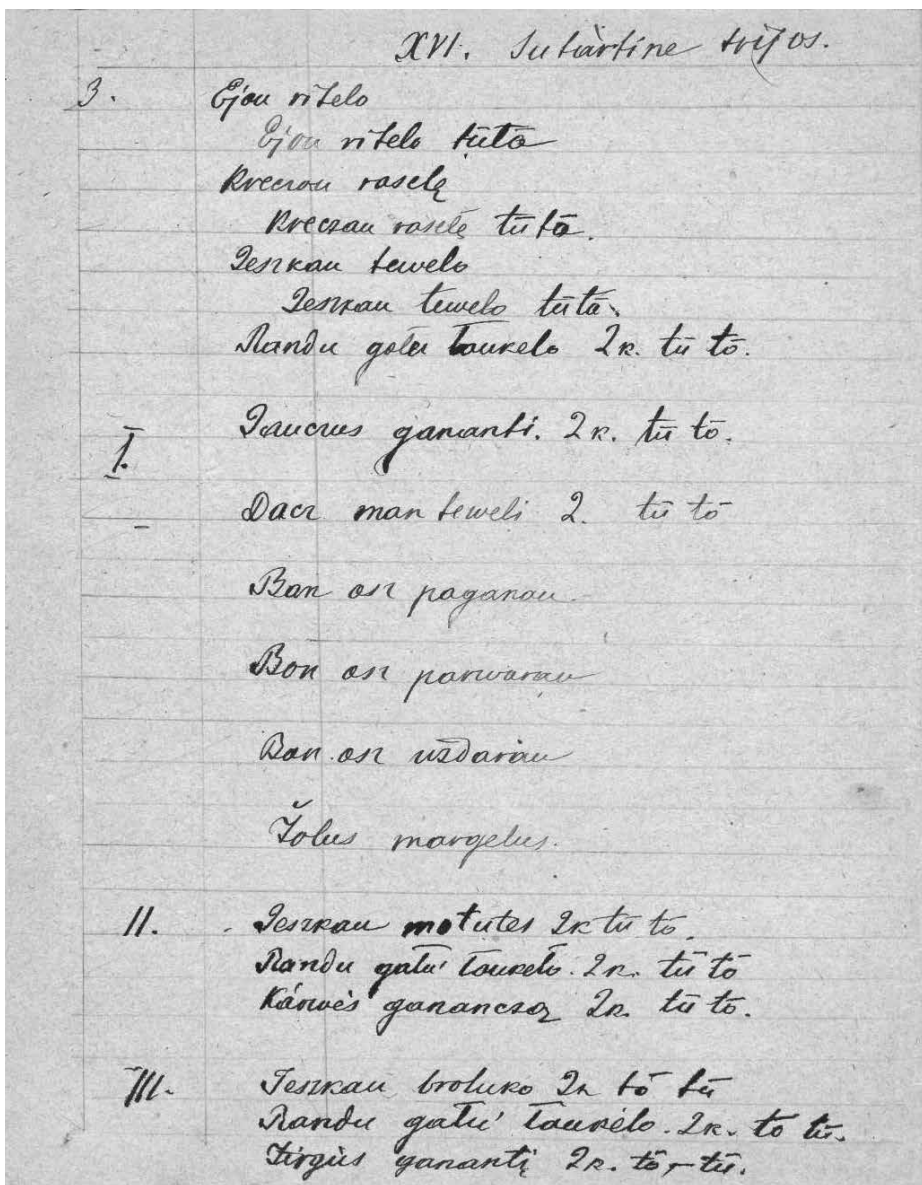 XVI. Sutàrtine trijos.
3. Ejou rïtelo
Ejou rïtelo tūtō
Kreczou raselę
Kreczau raselę tū tō.
Jeszkau tewelo
Jeszkau tewelo tū tō.
Randu galu laukelo 2 k. tū tō.
I. Jauczus gananti. 2 k. tū tō.
Dacz man teweli 2. tū tō
Ban asz paganau.
Bon asz parwarau
Ban asz uždarau
Žolus margelus.
II. Jeszkau motutes 2k tū to.
Randu galu' laukelo. 2 k. tū tō
Kárwės gananczą 2k. tū tō.
III. Jeszkau broluko 2k tō tū
Randu galu' laukėlo. 2k. to tū.
Žirgùs ganantį 2k. tō - tū.